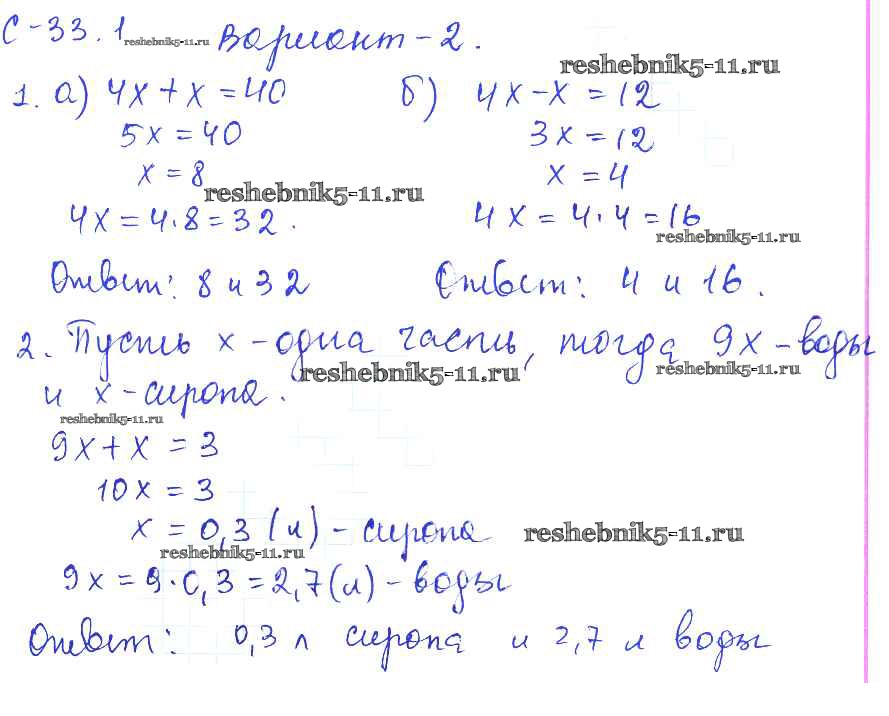 С-33.1 reshebnik5-11.ru Вариант-2.
reshebnik5-11.ru
1. а) 4х+х=40 б) 4х-х=12
5х=40 3х=12
х=8 х=4
reshebnik5-11.ru
4х=4·8=32. 4х=4·4=16
reshebnik5-11.ru
Ответ: 8 и 32 Ответ: 4 и 16.
2. Пусть х-одна часть, тогда 9х-воды
reshebnik5-11.ru reshebnik5-11.ru
и х-сиропа.
reshebnik5-11.ru
9х+х=3
10х=3
х=0,3 (л)-сиропа reshebnik5-11.ru
reshebnik5-11.ru
9х=9·0,3=2,7(л)-воды
Ответ: 0,3 л сиропа и 2,7 л воды